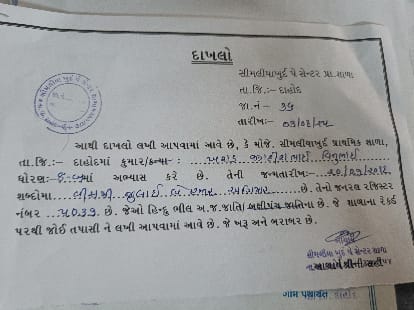 દાખલો
સીમલીયાખુર્દ પે સેન્ટર પ્રા.શાળા
તા.જિ:- દાહોદ
જા.નં : ૩૬
તારીખ: ૦૩/૦૨/૨૫
આથી દાખલો લખી આપવામાં આવે છે, કે મોજે. સીમલીયાખુર્દ પ્રાથમિક શાળા,
તા.જિ:- દાહોદમાં કુમાર/કન્યા- :
ધોરણ:- માં અભ્યાસ કરે છે. તેની જન્મતારીખ:- ૨૦/૦૭/૨૦૧૨
શબ્દોમાં વીસમી જુલાઈ બે હજાર છે. તેનો જનરલ રજિસ્ટર
નંબર છે. જેઓ હિન્દુ ભીલ અ.જ.જાતિ/ બક્ષીપંચ જાતિના છે. જે શાળાના રેકર્ડ
પરથી જોઈ તપાસી ને લખી આપવામાં આવે છે. જે ખરૂ અને બરાબર છે.
આચાર્ય
સીમલીયાખુર્દ પે સેન્ટર શાળા
ગ્રામ પંચાયત